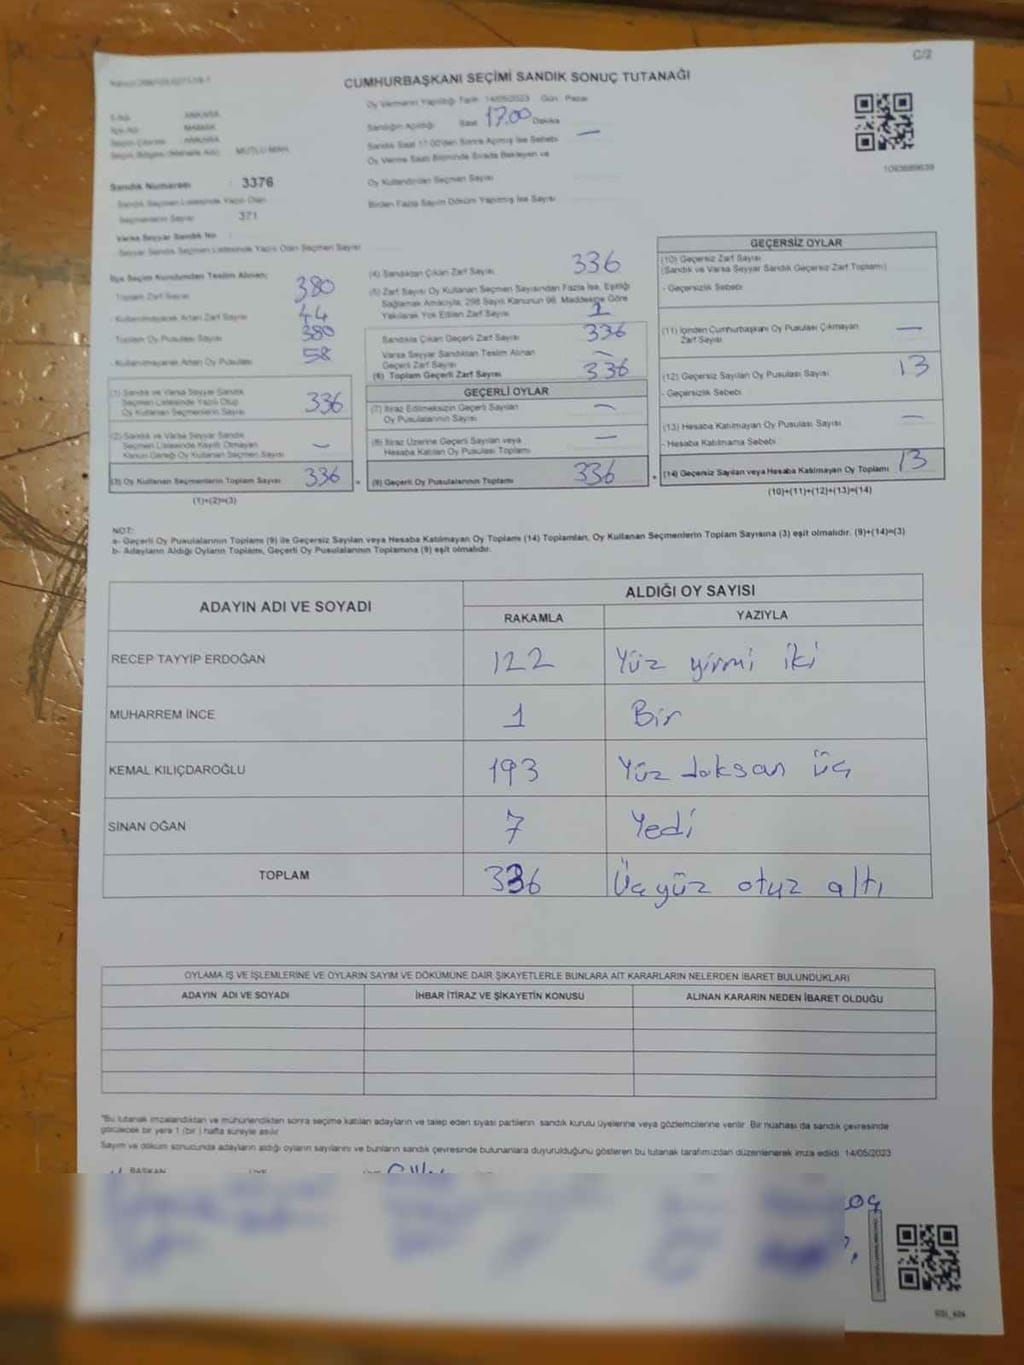 C/2
CUMHURBAŞKANI SEÇİMİ SANDIK SONUÇ TUTANAĞI
Oy Vermenin Yapıldığı Tarih 14/05/2023 Gün: Pazar
Sandığın Açıldığı Saat 17.00 Dakika
Sandık Saat 17:00'den Sonra Açılmış İse Sebebi —
Oy Verme Saati Bitiminde Sırada Bekleyen ve
Oy Kullandırılan Seçmen Sayısı
Birden Fazla Sayım Döküm Yapılmış İse Sayısı
ANKARA
MAMAK
ANKARA
MUTLU MAH.
Sandık Numarası : 3376
Sandık Seçmen Listesinde Yazılı Olan
Seçmenlerin Sayısı : 371
Varsa Seyyar Sandık No
Seyyar Sandık Seçmen Listesinde Yazılı Olan Seçmen Sayısı
İlçe Seçim Kurulundan Teslim Alınan;
Toplam Zarf Sayısı 380
- Kullanılmayarak Artan Zarf Sayısı 44
Toplam Oy Pusulası Sayısı 380
- Kullanılmayarak Artan Oy Pusulası 58
(1) Sandık ve Varsa Seyyar Sandık
Seçmen Listesinde Yazılı Olup
Oy Kullanan Seçmenlerin Sayısı 336
(2) Sandık ve Varsa Seyyar Sandık
Seçmen Listesinde Kayıtlı Olmayan
Kanun Gereği Oy Kullanan Seçmen Sayısı —
(3) Oy Kullanan Seçmenlerin Toplam Sayısı 336
(1)+(2)=(3)
(4) Sandıktan Çıkan Zarf Sayısı 336
(5) Zarf Sayısı Oy Kullanan Seçmen Sayısından Fazla İse, Eşitliği
Sağlamak Amacıyla, 298 Sayılı Kanunun 98. Maddesine Göre
Yakılarak Yok Edilen Zarf Sayısı
Sandıkta Çıkan Geçerli Zarf Sayısı 336
Varsa Seyyar Sandıktan Teslim Alınan
Geçerli Zarf Sayısı —
(6) Toplam Geçerli Zarf Sayısı 336
GEÇERLİ OYLAR
(7) İtiraz Edilmeksizin Geçerli Sayılan
Oy Pusulalarının Sayısı —
(8) İtiraz Üzerine Geçerli Sayılan veya
Hesaba Katılan Oy Pusulası Toplamı —
(9) Geçerli Oy Pusulalarının Toplamı 336
GEÇERSİZ OYLAR
(10) Geçersiz Zarf Sayısı
(Sandık ve Varsa Seyyar Sandık Geçersiz Zarf Toplamı)
- Geçersizlik Sebebi
(11) İçinden Cumhurbaşkanı Oy Pusulası Çıkmayan
Zarf Sayısı —
(12) Geçersiz Sayılan Oy Pusulası Sayısı 13
- Geçersizlik Sebebi
(13) Hesaba Katılmayan Oy Pusulası Sayısı —
- Hesaba Katılmama Sebebi
(14) Geçersiz Sayılan veya Hesaba Katılmayan Oy Toplamı 13
(10)+(11)+(12)+(13)=(14)
NOT:
a- Geçerli Oy Pusulalarının Toplamı (9) ile Geçersiz Sayılan veya Hesaba Katılmayan Oy Toplamı (14) Toplamları, Oy Kullanan Seçmenlerin Toplam Sayısına (3) eşit olmalıdır. (9)+(14)=(3)
b- Adayların Aldığı Oyların Toplamı, Geçerli Oy Pusulalarının Toplamına (9) eşit olmalıdır.
ADAYIN ADI VE SOYADI ALDIĞI OY SAYISI
RAKAMLA YAZIYLA
RECEP TAYYİP ERDOĞAN 122 Yüz yirmi iki
MUHARREM İNCE 1 Bir
KEMAL KILIÇDAROĞLU 193 Yüz doksan üç
SİNAN OĞAN 7 Yedi
TOPLAM 336 Üçyüz otuz altı
OYLAMA İŞ VE İŞLEMLERİNE VE OYLARIN SAYIM VE DÖKÜMÜNE DAİR ŞİKAYETLERLE BUNLARA AİT KARARLARIN NELERDEN İBARET BULUNDUKLARI
ADAYIN ADI VE SOYADI İHBAR İTİRAZ VE ŞİKAYETİN KONUSU ALINAN KARARIN NEDEN İBARET OLDUĞU
"Bu tutanak imzalandıktan ve mühürlendikten sonra seçime katılan adayların ve talep eden siyasi partilerin sandık kurulu üyelerine veya gözlemcilerine verilir. Bir nüshası da sandık çevresinde
görülecek bir yere 1 (bir) hafta süreyle asılır.
Sayım ve döküm sonucunda adayların aldığı oyların sayılarını ve bunların sandık çevresinde bulunanlara duyurulduğunu gösteren bu tutanak tarafımızdan düzenlenerek imza edildi. 14/05/2023
BAŞKAN ÜYE